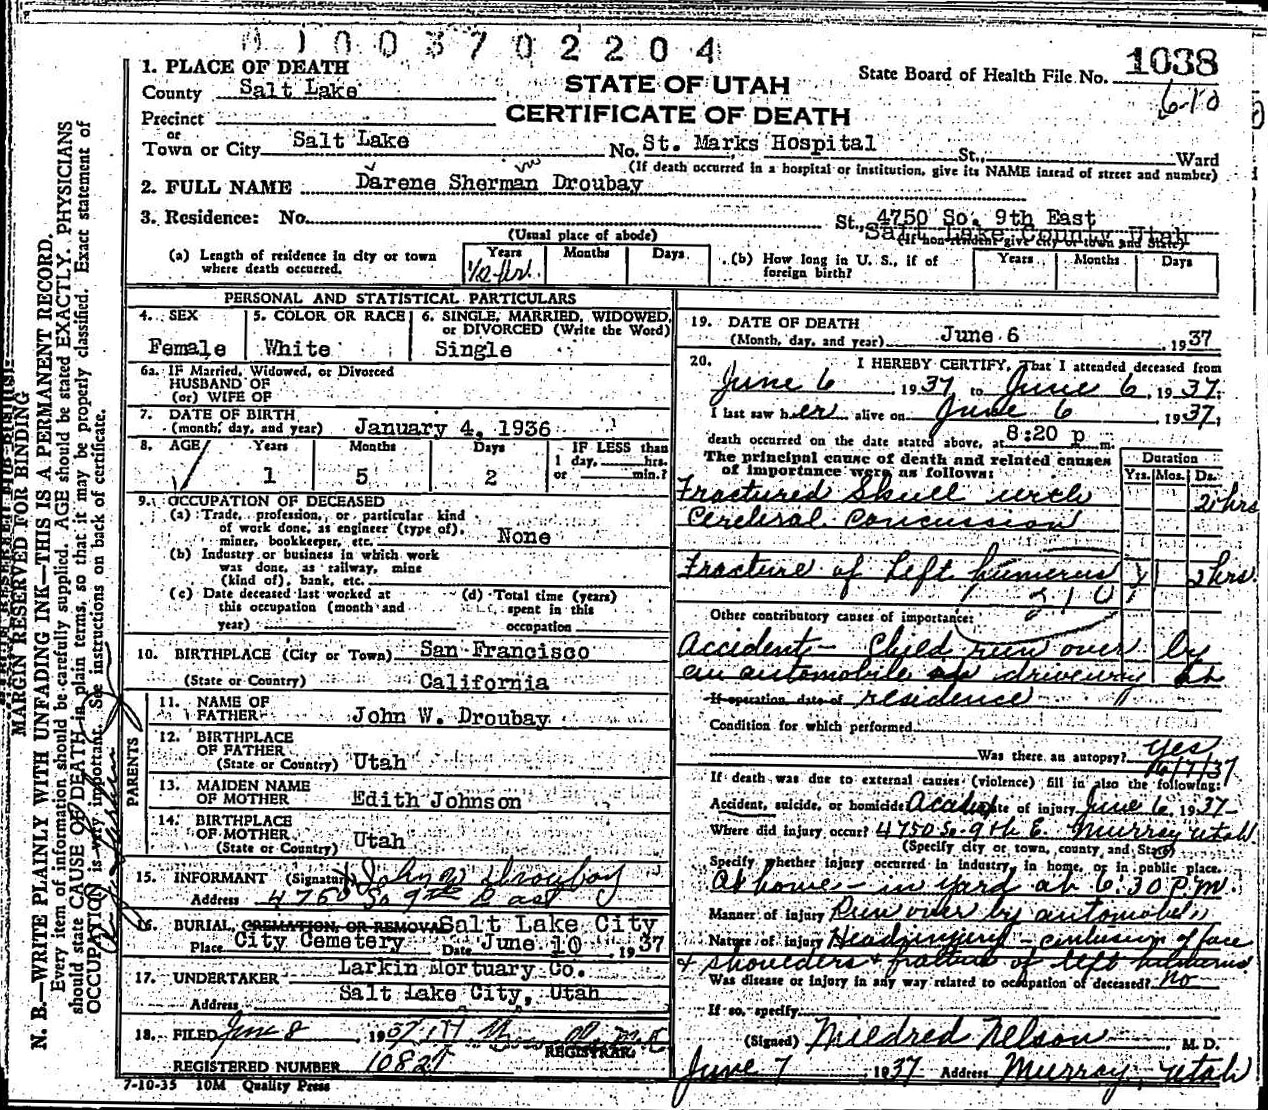 01003702204
1. PLACE OF DEATH
County Salt Lake
STATE OF UTAH
CERTIFICATE OF DEATH
State Board of Health File No. 1038
6-10
Precinct
or
Town or City Salt Lake No. St. Marks Hospital St., Ward
(If death occurred in a hospital or institution, give its NAME instead of street and number)
2. FULL NAME Darene Sherman Droubay
3. Residence: No. St., 4750 So. 9th East
Salt Lake County Utah
(Usual place of abode) (If non-resident give city or town and State)
(a) Length of residence in city or town where death occurred. Years 1/2 yr. Months Days
(b) How long in U. S., if of foreign birth? Years Months Days
PERSONAL AND STATISTICAL PARTICULARS
4. SEX Female
5. COLOR OR RACE White
6. SINGLE, MARRIED, WIDOWED, or DIVORCED (Write the Word) Single
6a. IF Married, Widowed, or Divorced
HUSBAND OF
(or) WIFE OF
7. DATE OF BIRTH
(month, day, and year) January 4, 1936
8. AGE Years 1 Months 5 Days 2 IF LESS than 1 day, hrs. or min.?
9. OCCUPATION OF DECEASED
(a) Trade, profession, or particular kind
of work done, as engineer (type of),
miner, bookkeeper, etc. None
(b) Industry or business in which work
was done, as railway, mine
(kind of), bank, etc.
(c) Date deceased last worked at
this occupation (month and
year)
(d) Total time (years)
spent in this
occupation
10. BIRTHPLACE (City or Town) San Francisco
(State or Country) California
PARENTS
11. NAME OF FATHER John W. Droubay
12. BIRTHPLACE OF FATHER
(State or Country) Utah
13. MAIDEN NAME OF MOTHER Edith Johnson
14. BIRTHPLACE OF MOTHER
(State or Country) Utah
15. INFORMANT (Signature) John W Droubay
Address 4750 So 9th East
16. BURIAL, CREMATION, OR REMOVAL Salt Lake City
Place City Cemetery Date June 10, 1937
17. UNDERTAKER Larkin Mortuary Co.
Address Salt Lake City, Utah
18. FILED June 8, 1937
REGISTRAR.
REGISTERED NUMBER 1082
7-10-35 10M Quality Press
19. DATE OF DEATH
(Month, day, and year) June 6, 1937
20. I HEREBY CERTIFY, That I attended deceased from
June 6 1937 to June 6, 1937;
I last saw her alive on June 6, 1937;
death occurred on the date stated above, at 8:20 p m.
The principal cause of death and related causes
of importance were as follows:
Duration
Yrs. Mos. Ds.
Fractured Skull with 2 hrs
Cerebral Concussion
Fracture of left humerus 2 hrs.
210
Other contributory causes of importance:
Accident - Child run over by
an automobile driveway at
If operation, date of residence
Condition for which performed
Was there an autopsy? yes
6/7/37
If death was due to external causes (violence) fill in also the following:
Accident, suicide, or homicide? Accident Date of injury June 6, 1937
Where did injury occur? 4750 So. 9th E. Murray Utah
(Specify city or town, county, and State)
Specify whether injury occurred in industry, in home, or in public place.
At home - in yard at 6:30 P.M.
Manner of injury Run over by automobile
Nature of injury Head injury - contusion of face
& shoulders & fracture of left humerus
Was disease or injury in any way related to occupation of deceased? No
If so, specify
(Signed) Mildred Nelson, M. D.
June 7, 1937 Address Murray, Utah
MARGIN RESERVED FOR BINDING
N. B.—WRITE PLAINLY WITH UNFADING INK—THIS IS A PERMANENT RECORD.
Every item of information should be carefully supplied. AGE should be stated EXACTLY. PHYSICIANS
should state CAUSE OF DEATH in plain terms, so that it may be properly classified. Exact statement of
OCCUPATION is very important. See instructions on back of certificate.